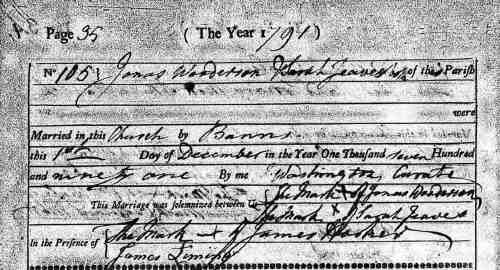 Page 35 ( The Year 1791 )
No 105 } Jonas Wooderson & Sarah Jeaves of this Parish
were
Married in this Church by Banns
this 1st Day of December in the Year One Thousand seven Hundred
and ninety one By me Washington, Curate
This Marriage was solemnized between Us { The Mark X of Jonas Wooderson
The Mark X of Sarah Jeaves
In the Presence of { The Mark X of James
James